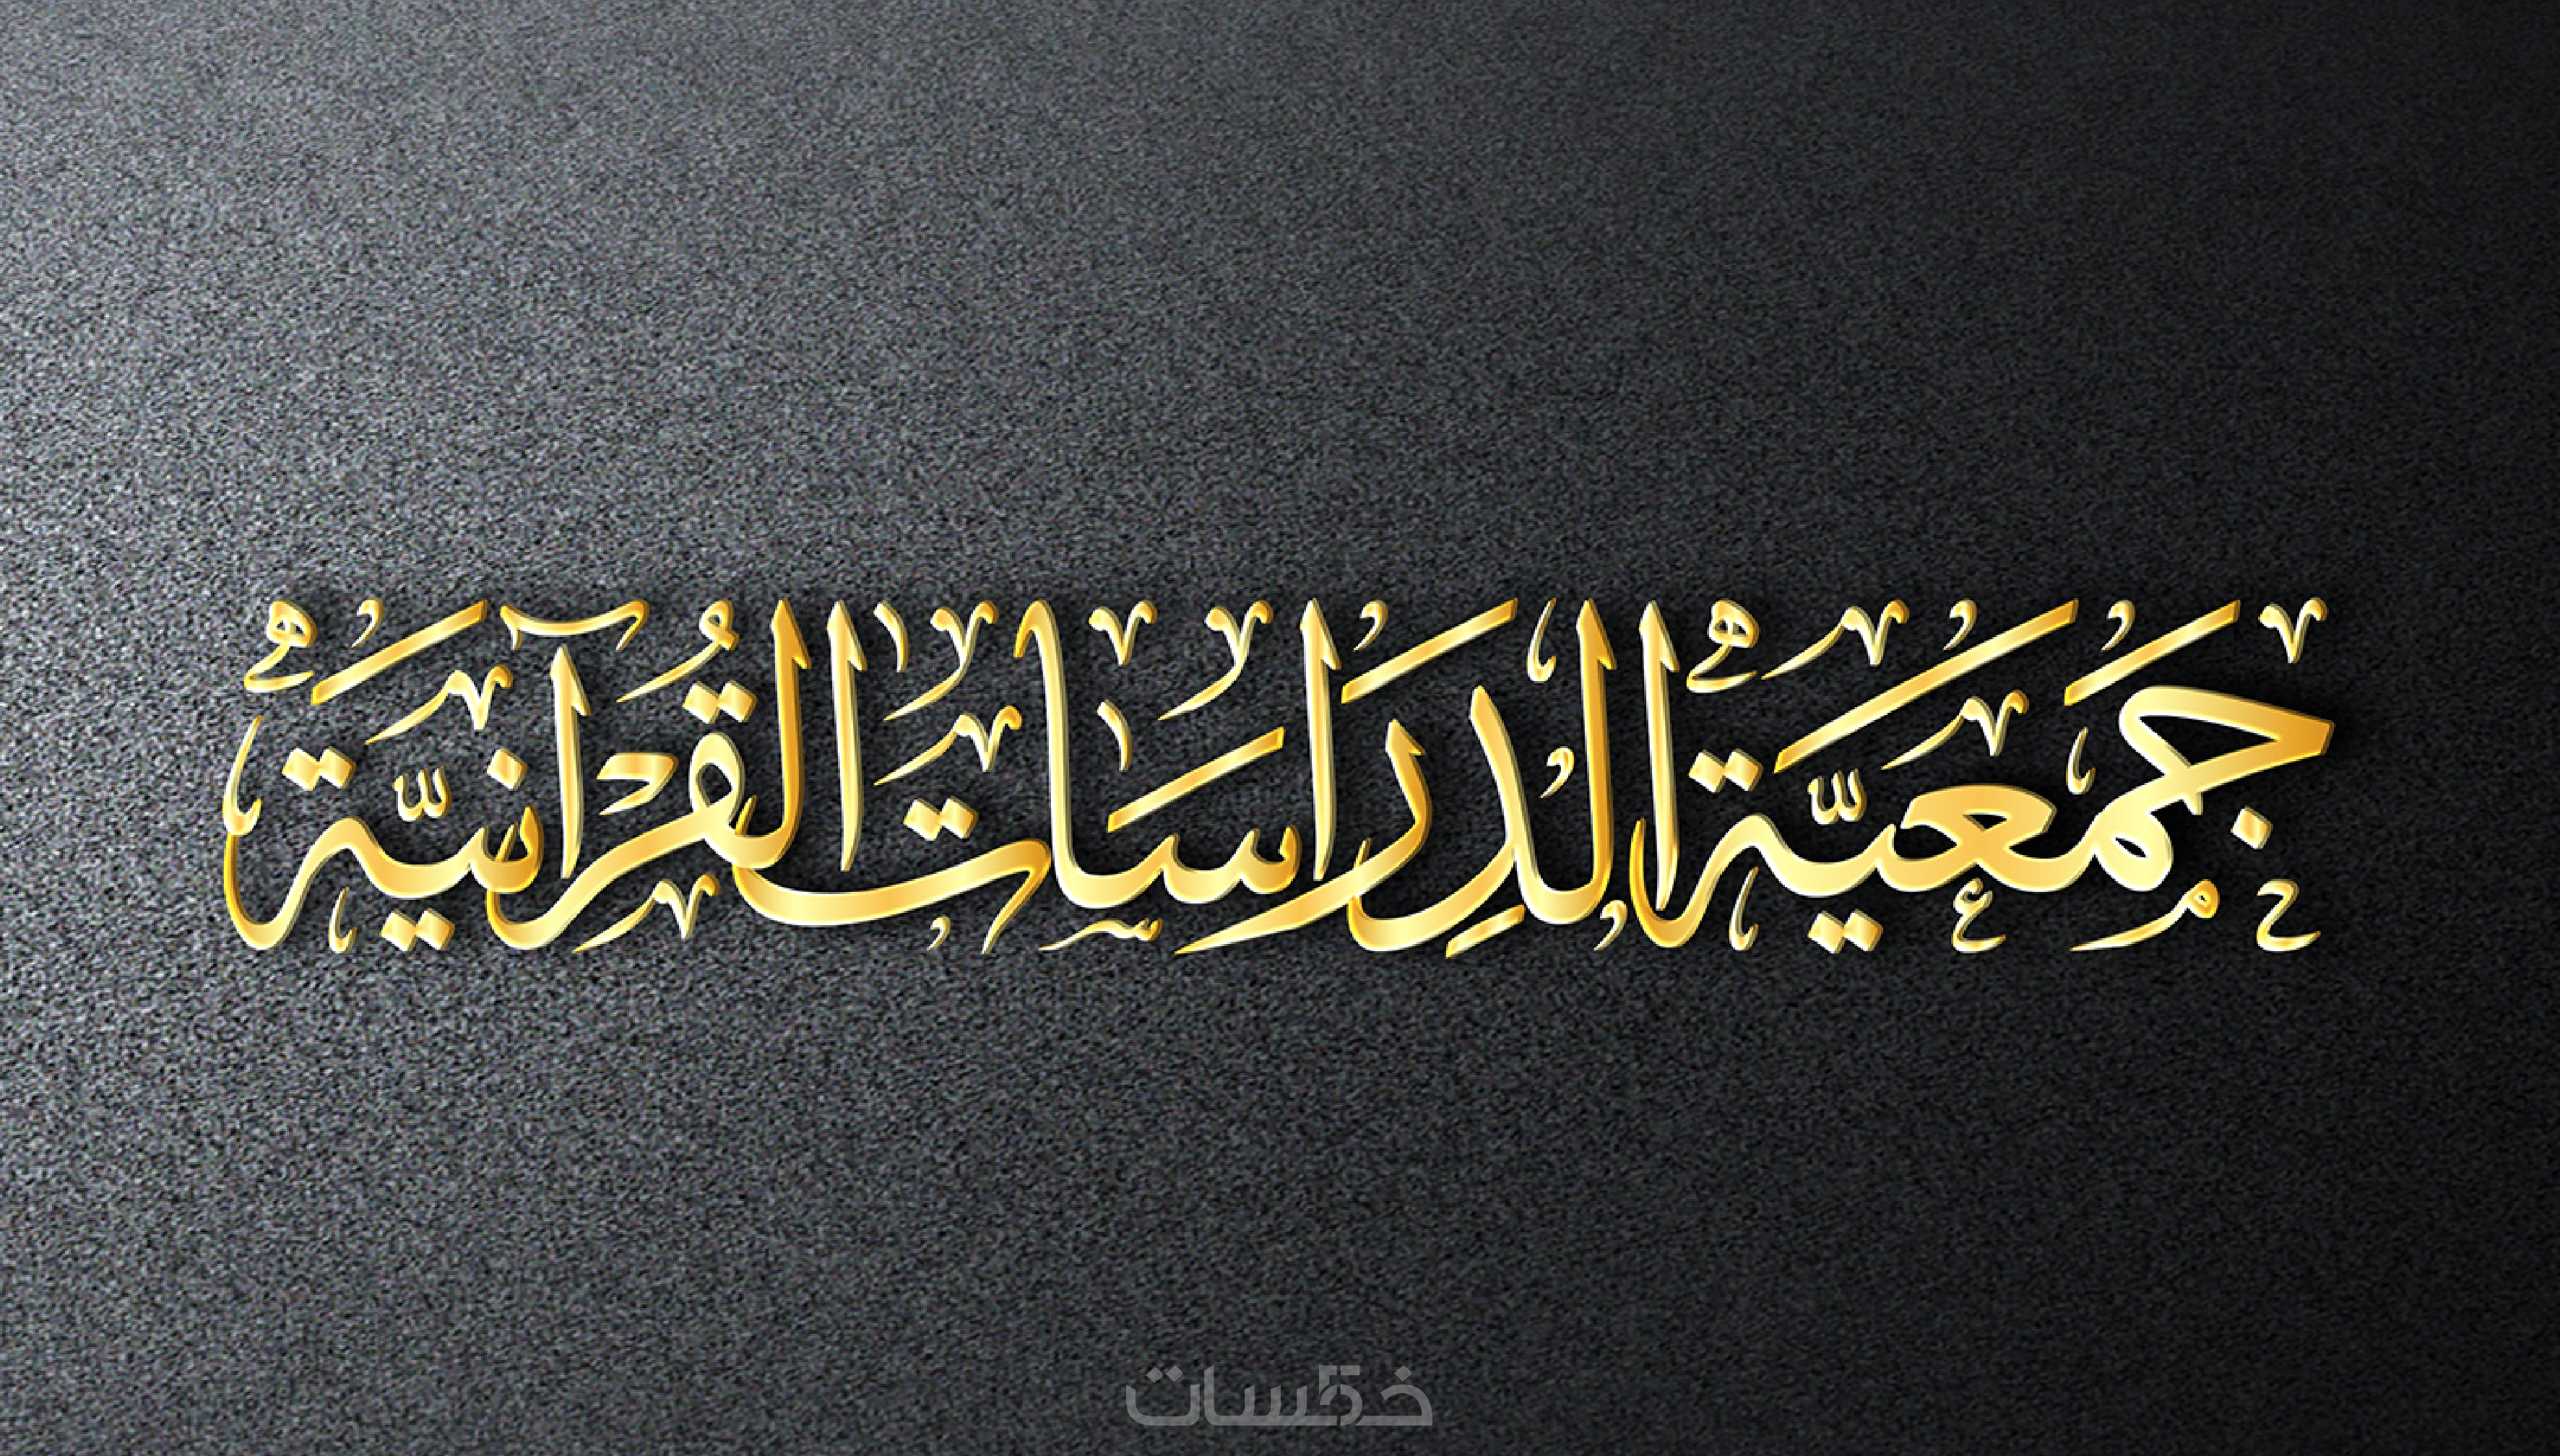 جَمَعيَّة الدِرَاسَات القُرآنيَّة
خمسات